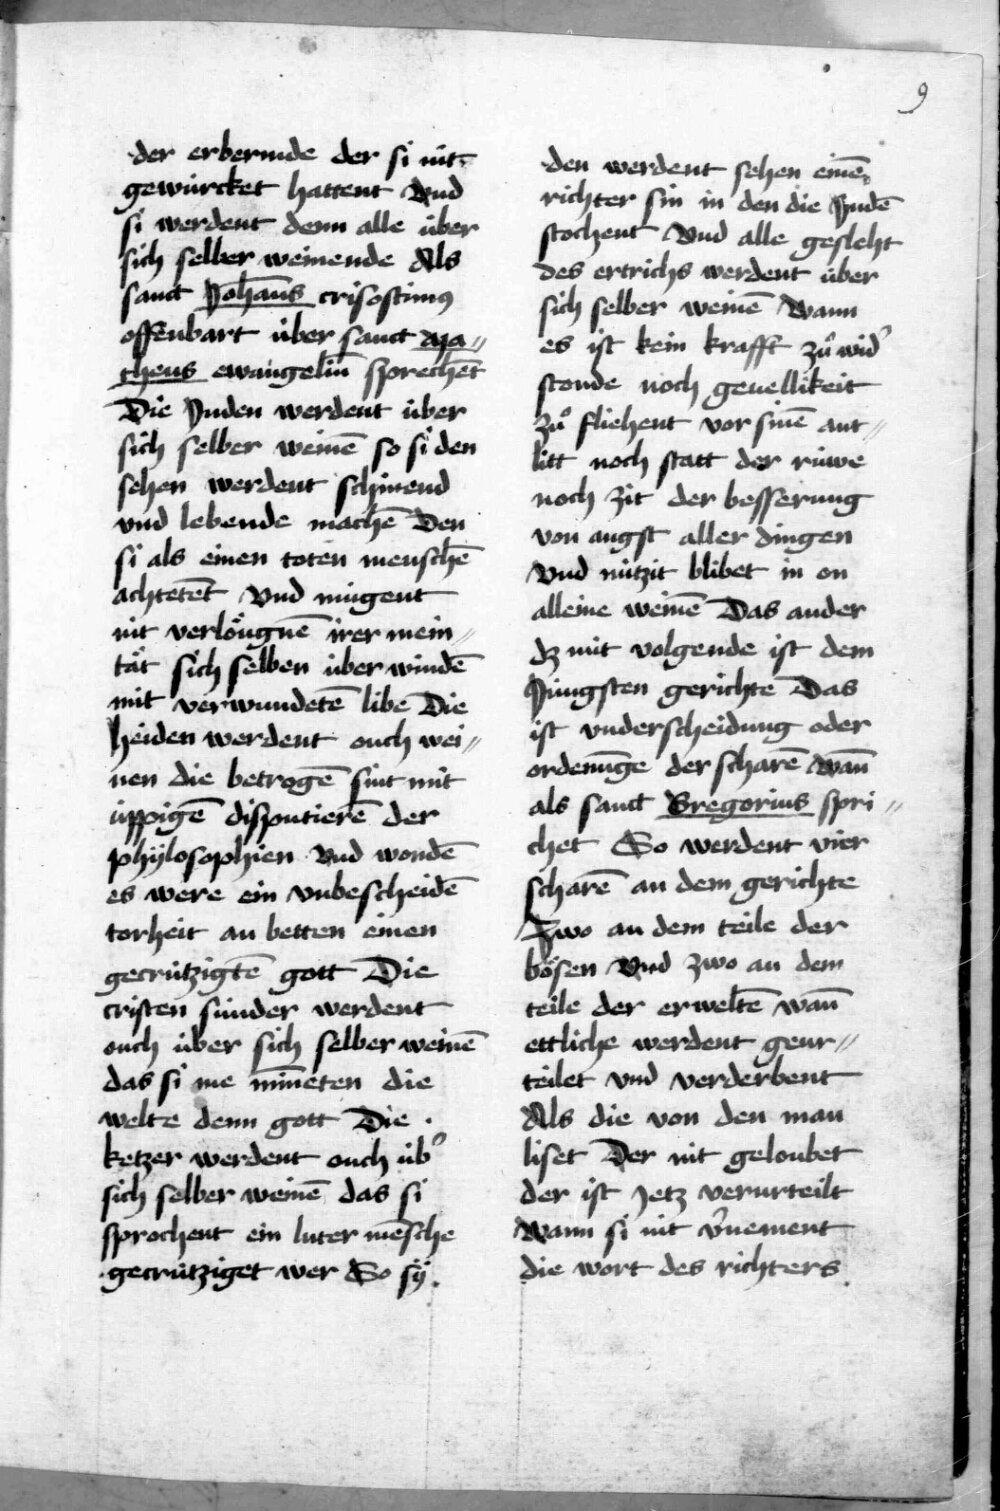 9
der erbermde der si nit
gewürcket hattent Vnd
si werdent denn alle über
sich selber weinende Als
sanct Johāns crisostimꝰ
offenbart über sanct Ma〃
theus ewangeliū sprechēt
Die Juden werdent über
sich selber weinē so si den
sehen werdent schinend
vnd lebende machē Den
si als einen toten menschē
achtetēt Vnd mügent
nit verlöugnē irer mein〃
tät sich selben über windē
mit verwundetē libe Die
heiden werdent ouch wei〃
nen die betrogē sint mit
üppigē disputierē der
phÿlosophien Vnd wondē
es were ein vnbescheidē
torheit an betten einen
gecrützigtē gott Die
cristen sünder werdent
ouch über sich selber weinē
das si me mīneten die
welte denn gott Die
ketzer werdent ouch übˀ
sich selber weinē das si
sprochent ein luter mēsche
gecrütziget wer So sÿ
den werdent sehen einē
richter sin in den die Judē
stochent Vnd alle gesleht
des ertrichs werdent über
sich selber weinē Wann
es ist kein krafft zů widˀ
stonde noch geuellikeit
zů fliehent vor sinē ant〃
litt noch statt der rüwe
noch zit der besserung
von angst aller dingen
Vnd nützit blibet in on
alleine weinē Das ander
dz mit volgende ist dem
Jüngsten gerichte Das
ist vnderscheidung oder
ordenūge der scharē wan̄
als sanct Gregorius spri〃
chet So werdent vier
scharē an dem gerichte
Zwo an dem teile der
bösen Vnd zwo an dem
teile der erweltē wan̄
ettliche werdent geur〃
teilet vnd verderbent
Als die von den man
liset Der nit geloubet
der ist Jetz verurteilt
Wann si nit vˀnement
die wort des richters